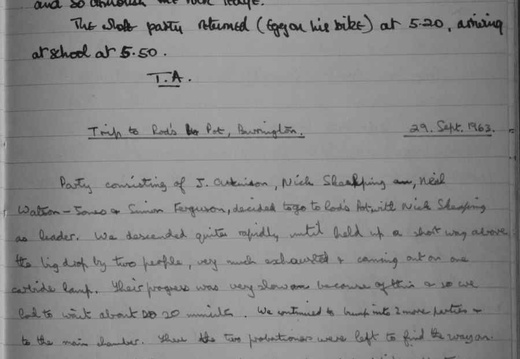 and so
The whole party returned (Egg on his bike) at 5.20, arriving
at school at 5.50.
T.A.
Trip to Rod's Pot, Burrington. 29. Sept. 1963.
Party consisting of J. Atkinson, Nick, Neil
Watson-Jones & Simon Ferguson, decided to go to Rod's Pot with Nick
as leader. We descended quite rapidly until held up a short way above
the big drop by two people, very much exhausted & coming out on one
carbide lamp. Their progress was very slow because of this & so we
had to wait about 20 minutes. We continued to bump into 2 more parties
to the main chamber. Here the two probationers were left to find the way on.